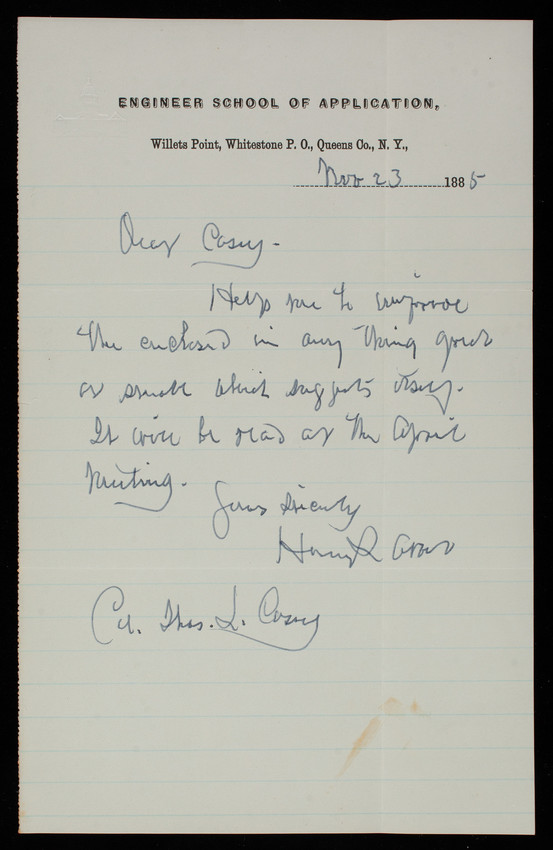 ENGINEER SCHOOL OF APPLICATION,
Willets Point, Whitestone P. O., Queens Co., N. Y.,
Nov 23 1885
Dear Casey -
Help me to improve
the enclosed in any thing great
or small which suggests itself.
It will be read at the April
meeting.
Yours sincerely
Henry L Abbot
Col. Thos. L. Casey